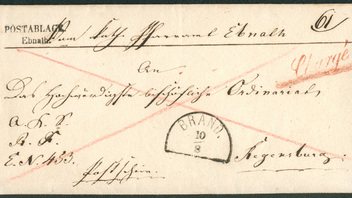 POSTABLAGE
Ebnath.
Vom Kath. Pfarramt Ebnath
61
Charge
An
Das Hochwürdigste bischöfliche Ordinariat
R. S.
E. N. 453.
Postschein.
BRAND.
10
8
Regensburg.